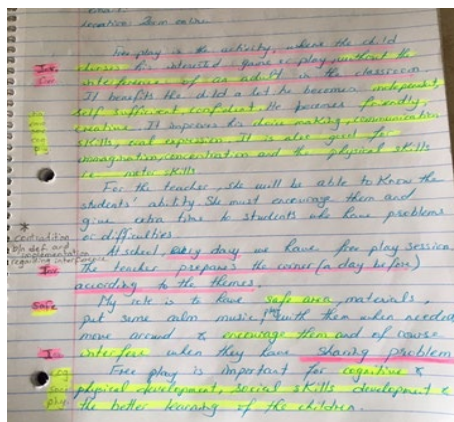 Location: Zoom online
Free play is the activity, where the child
chooses his interested game or play, without the
interference of an adult in the classroom
It benefits the child a lot he becomes independent,
self sufficient confident. He becomes friendly,
creative. It improves his choice making, communication
skills, oral expression. It is also good for
imagination, concentration and the physical skills
motor skills.
For the teacher, she will be able to know the
students' ability. She must encourage them and
give extra time to students who have problems
or difficulties.
At school, every day we have free play session.
The teacher prepares the corner (a day before)
according to the themes.
My role is to have safe area, materials,
put some calm music, play with them when needed
move around & encourage them and of course
interfere when they have sharing problem
Free play is important for cognitive &
physical development, social skills development &
the better learning of the children.
*
contradiction
b/n def. and
implementation
regarding interference
Safe